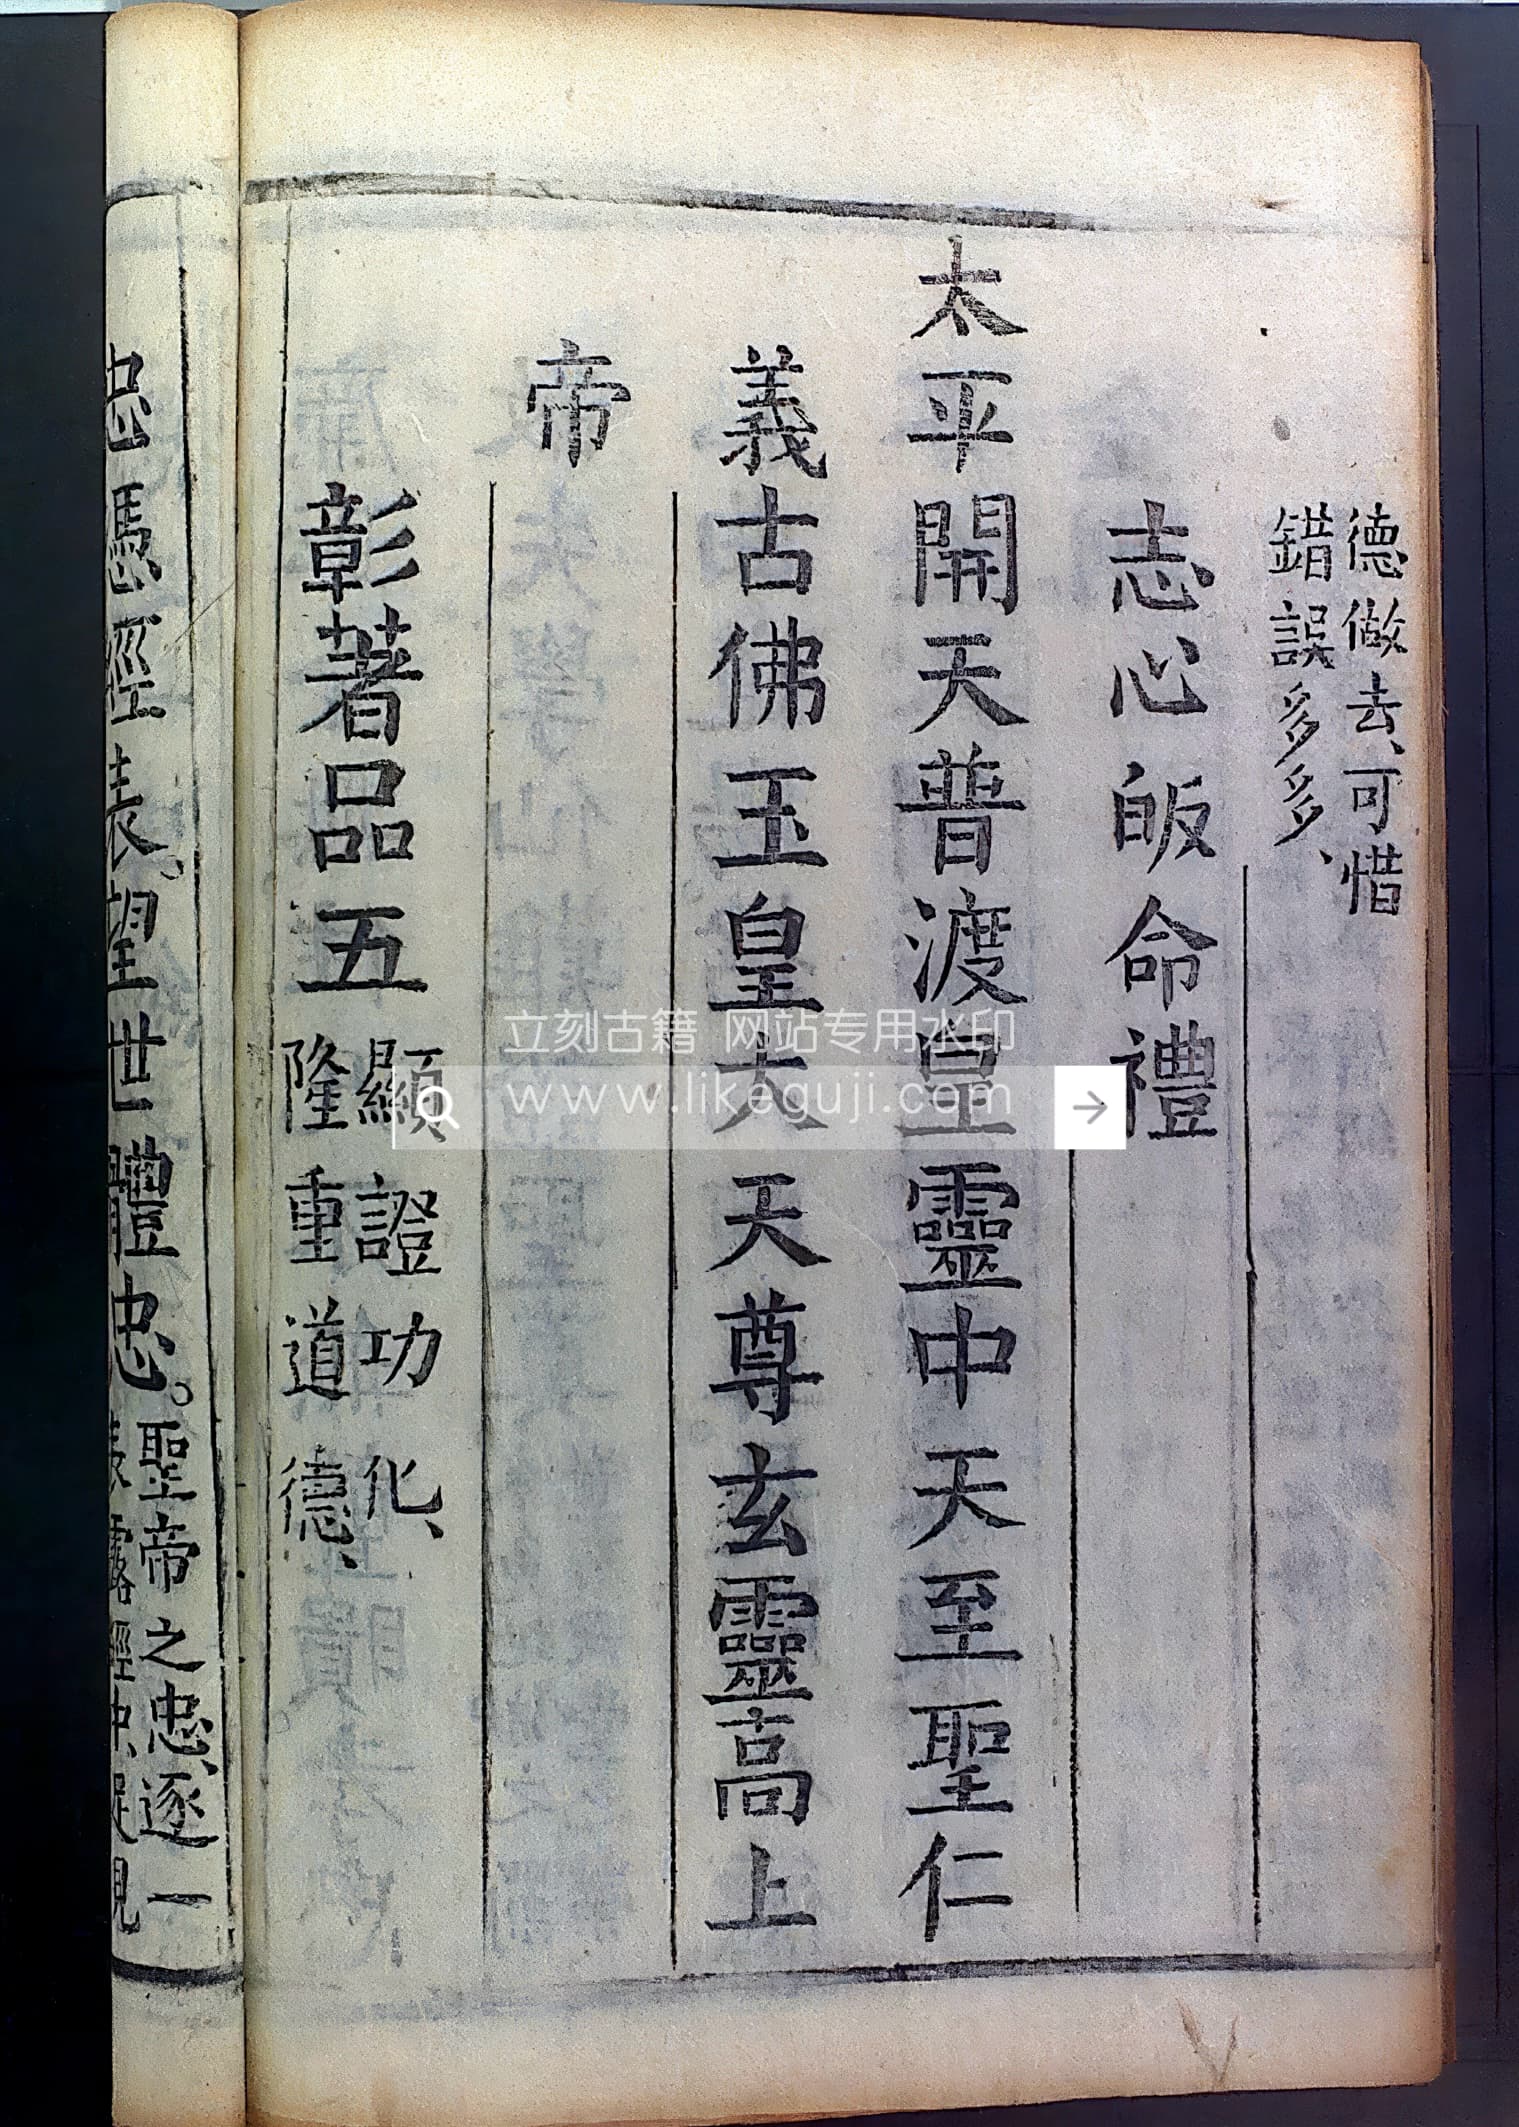 德做去、可惜
錯誤多多、
志心皈命禮
太平開天普渡皇靈中天至聖仁
義古佛玉皇大天尊玄靈高上
帝
彰著品五
顯證功化、
隆重道德、
忠憑經表、望世體忠。
聖帝之忠、逐一
表露經中、
立刻古籍 网站专用水印
www.likeguji.com